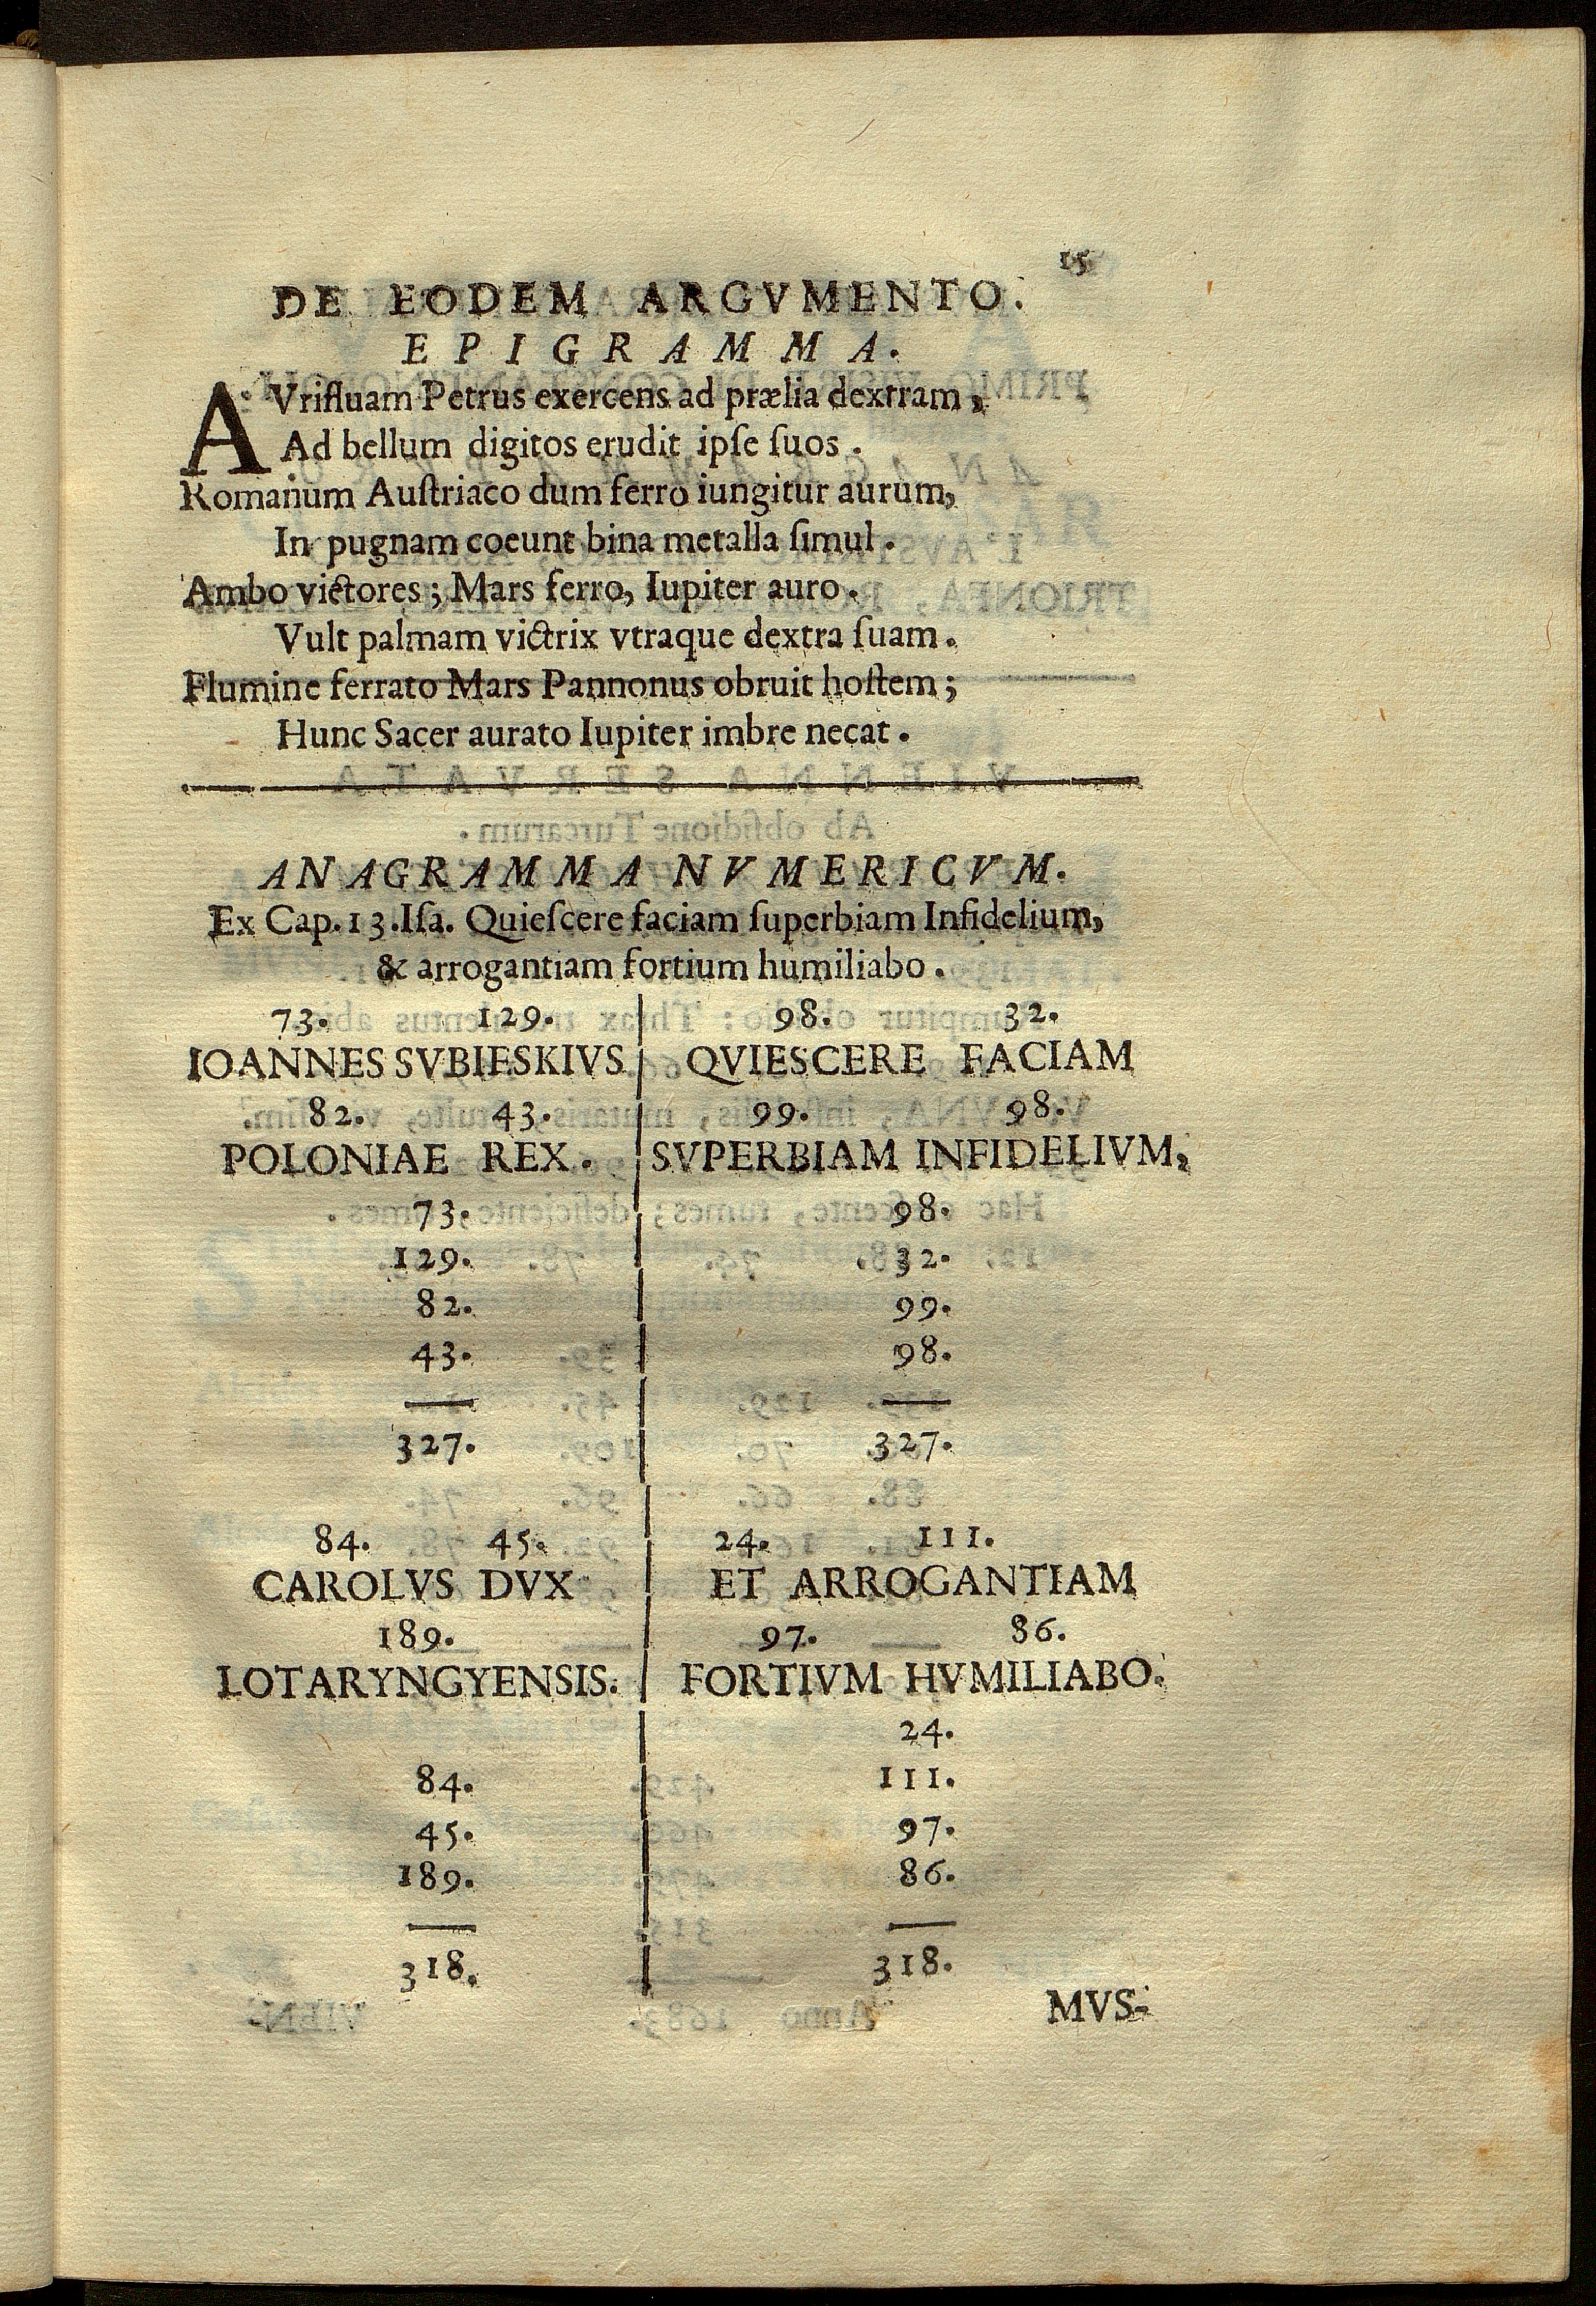 15
DE EODEM ARGVMENTO.
EPIGRAMMA.
AVrifluam Petrus exercens ad prælia dextram,
Ad bellum digitos erudit ipſe ſuos.
Romanum Auſtriaco dum ferro iungitur aurum,
In pugnam coeunt bina metalla ſimul.
Ambo victores; Mars ferro, Iupiter auro.
Vult palmam victrix vtraque dextra ſuam.
Flumine ferrato Mars Pannonus obruit hoſtem;
Hunc Sacer aurato Iupiter imbre necat.
ANAGRAMMA NVMERICVM.
Ex Cap. 13. Iſa. Quieſcere faciam ſuperbiam Infidelium,
& arrogantiam fortium humiliabo.
73. 129. 98. 32.
IOANNES SVBIESKIVS QVIESCERE FACIAM
82. 43. 99. 98.
POLONIAE REX. SVPERBIAM INFIDELIVM,
73. 98.
129. 32.
82. 99.
43. 98.
327. 327.
84. 45. 24. 111.
CAROLVS DVX ET ARROGANTIAM
189. 97. 86.
LOTARYNGYENSIS. FORTIVM HVMILIABO.
24.
84. 111.
45. 97.
189. 86.
318. 318.
MVS-